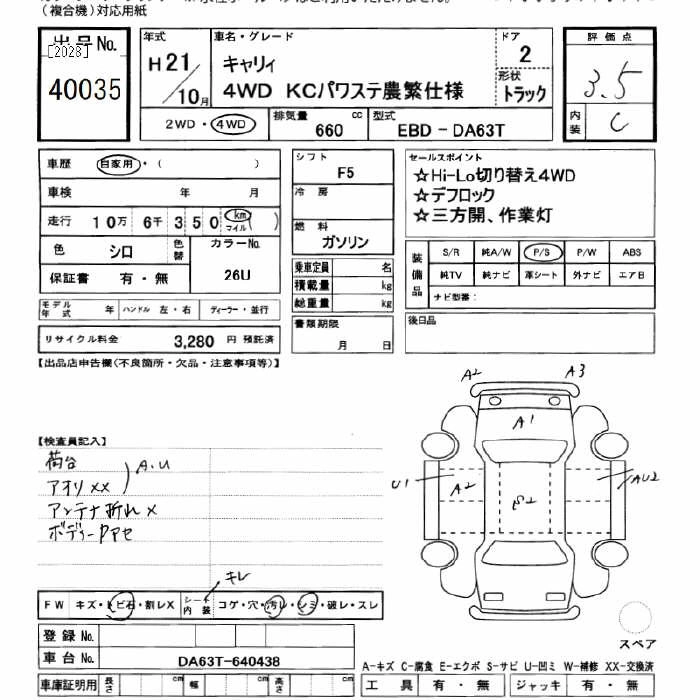 （複合機）対応用紙
出品No.
[2028]
40035
年式
H21/10月
車名・グレード
キャリィ
4WD KCパワステ農繁仕様
ドア
2
形状
トラック
評価点
3.5
内装
C
2WD・4WD
排気量
660 cc
型式
EBD-DA63T
車歴 自家用・（ ）
車検 年 月
走行 10万 6千 350 km マイル ( )
色 シロ
色替
カラーNo.
26U
保証書 有・無
モデル年式 年 ハンドル 左・右 ディーラー・並行
リサイクル料金 3,280 円 預託済
シフト
F5
冷房
燃料
ガソリン
乗車定員 名
積載量 kg
総重量 kg
書類期限
月 日
セールスポイント
☆Hi-Lo切り替え4WD
☆デフロック
☆三方開、作業灯
装備品
S/R 純A/W P/S P/W ABS
純TV 純ナビ 革シート 外ナビ エアB
ナビ型番：
後日品
【出品店申告欄(不良箇所・欠品・注意事項等)】
【検査員記入】
荷台
アオリ XX ) A.U
アンテナ折れ X
ボディーPアセ
A2 A3
A1
U1 A2 E2 AU2
キレ
FW キズ・トビ石・割レX シート内装 コゲ・穴・汚レ・シミ・破レ・スレ
スペア
登録No.
車台No. DA63T-640438
A-キズ C-腐食 E-エクボ S-サビ U-凹ミ W-補修 XX-交換済
車庫証明用 長さ cm 幅 cm 高さ cm
工具 有・無 ジャッキ 有・無